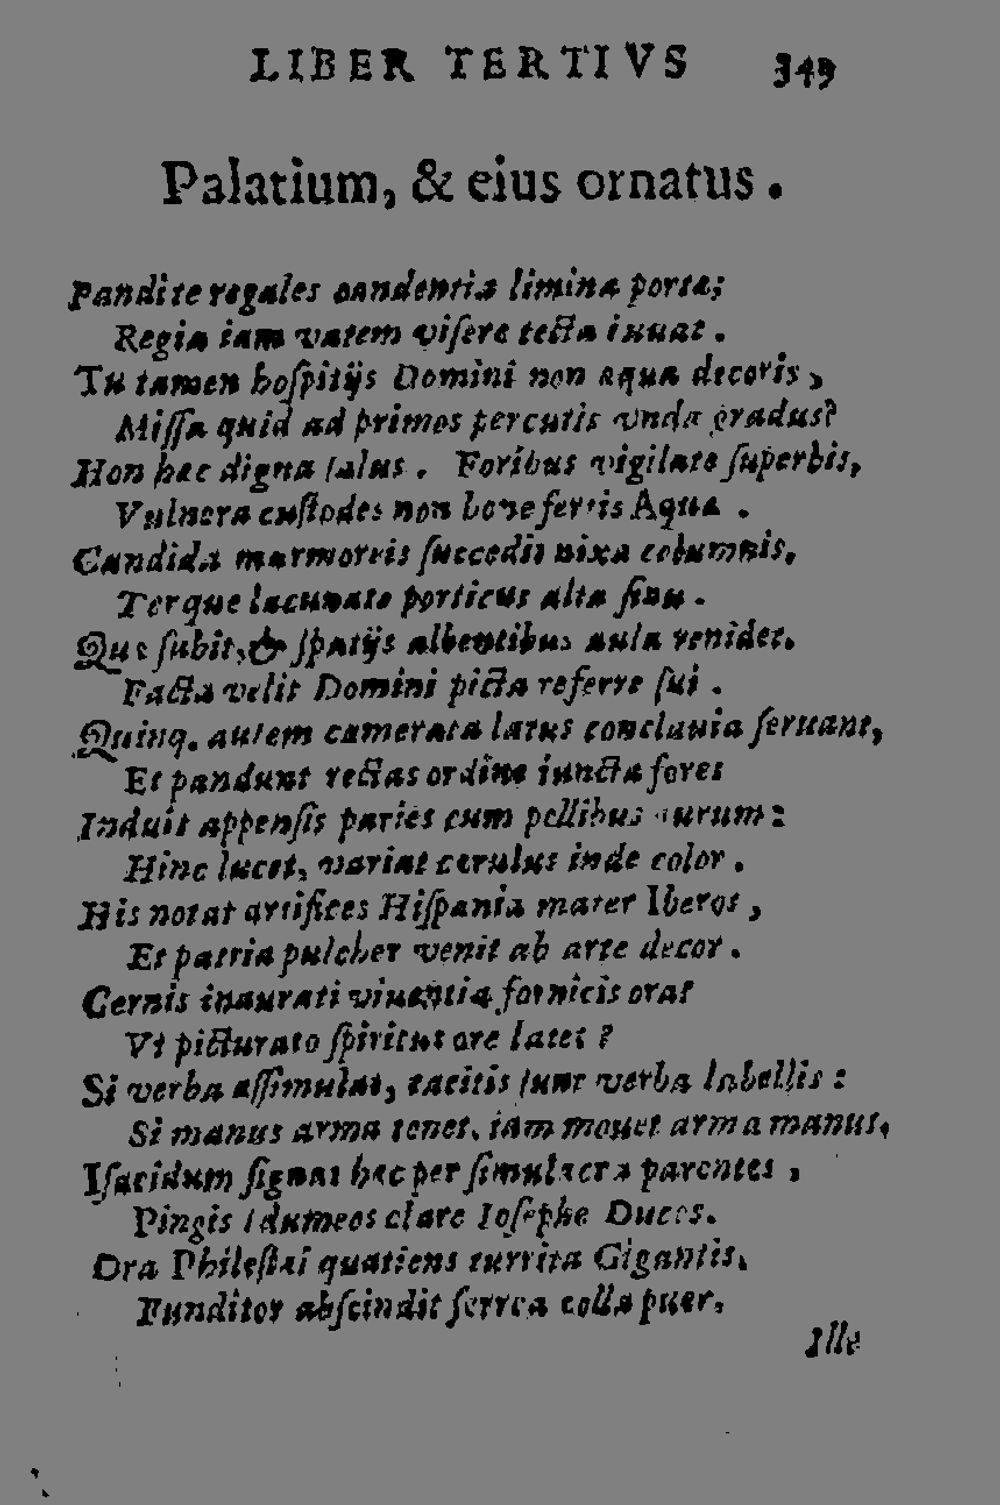 LIBER TERTIVS 349
Palatium, & eius ornatus.
Pandite regales candentia limina portæ;
Regia iam vatem visere tecta iuuat.
Tu tamen hospitijs Domini non æqua decoris,
Missa quid ad primos percutis vnda gradus?
Non hæc digna salus. Foribus vigilate superbis,
Vulnera custodes non bone fertis Aquæ.
Candida marmoreis succedit nixa columnis,
Terque lacunato porticus alta sinu.
Quæ subit, & spatijs albentibus aula renidet.
Facta velit Domini picta referre sui.
Quinq. autem camerata latus conclauia seruant,
Et pandunt rectas ordine iuncta fores
Induit appensis paries cum pellibus aurum:
Hinc lucet, variat cerulus inde color.
His notat artifices Hispania mater Iberos,
Et patria pulcher venit ab arte decor.
Cernis inaurati viuentia fornicis ora?
Vt picturato spiritus ore latet?
Si verba assimulat, tacitis sunt verba labellis:
Si manus arma tenet, iam mouet arma manus.
Isacidum signat hæc per simulacra parentes,
Pingis Idumeos clare Iosephe Duces.
Ora Philestæi quatiens turrita Gigantis,
Funditor abscindit ferrea colla puer,
Ille